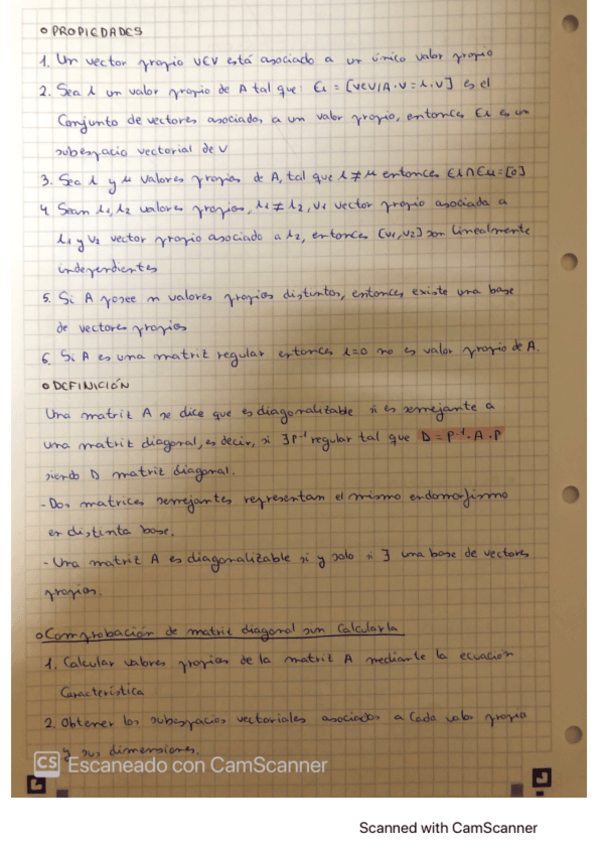 o PROPIEDADES
1. Un vector propio v∈V está asociado a un único valor propio
2. Sea λ un valor propio de A tal que: Eλ = [v∈V/A·v=λ·v] es el
Conjunto de vectores asociados a un valor propio, entonces Eλ es un
subespacio vectorial de V
3. Sea λ y μ valores propios de A, tal que λ≠μ entonces Eλ∩Eμ=[0]
4. Sean λ1, λ2 valores propios, λ1≠λ2, v1 vector propio asociado a
λ1 y v2 vector propio asociado a λ2, entonces [v1,v2] son linealmente
independientes
5. Si A posee n valores propios distintos, entonces existe una base
de vectores propios
6. Si A es una matriz regular entonces λ=0 no es valor propio de A.
o DEFINICIÓN
Una matriz A se dice que es diagonalizable si es semejante a
una matriz diagonal, es decir, si ∃P⁻¹ regular tal que D=P⁻¹·A·P
siendo D matriz diagonal.
- Dos matrices semejantes representan el mismo endomorfismo
en distinta base.
- Una matriz A es diagonalizable si y solo si ∃ una base de vectores
propios.
o Comprobación de matriz diagonal sin calcularla
1. Calcular valores propios de la matriz A mediante la ecuación
Característica
2. Obtener los subespacios vectoriales asociados a cada valor propio
y sus dimensiones.
CS Escaneado con CamScanner
Scanned with CamScanner